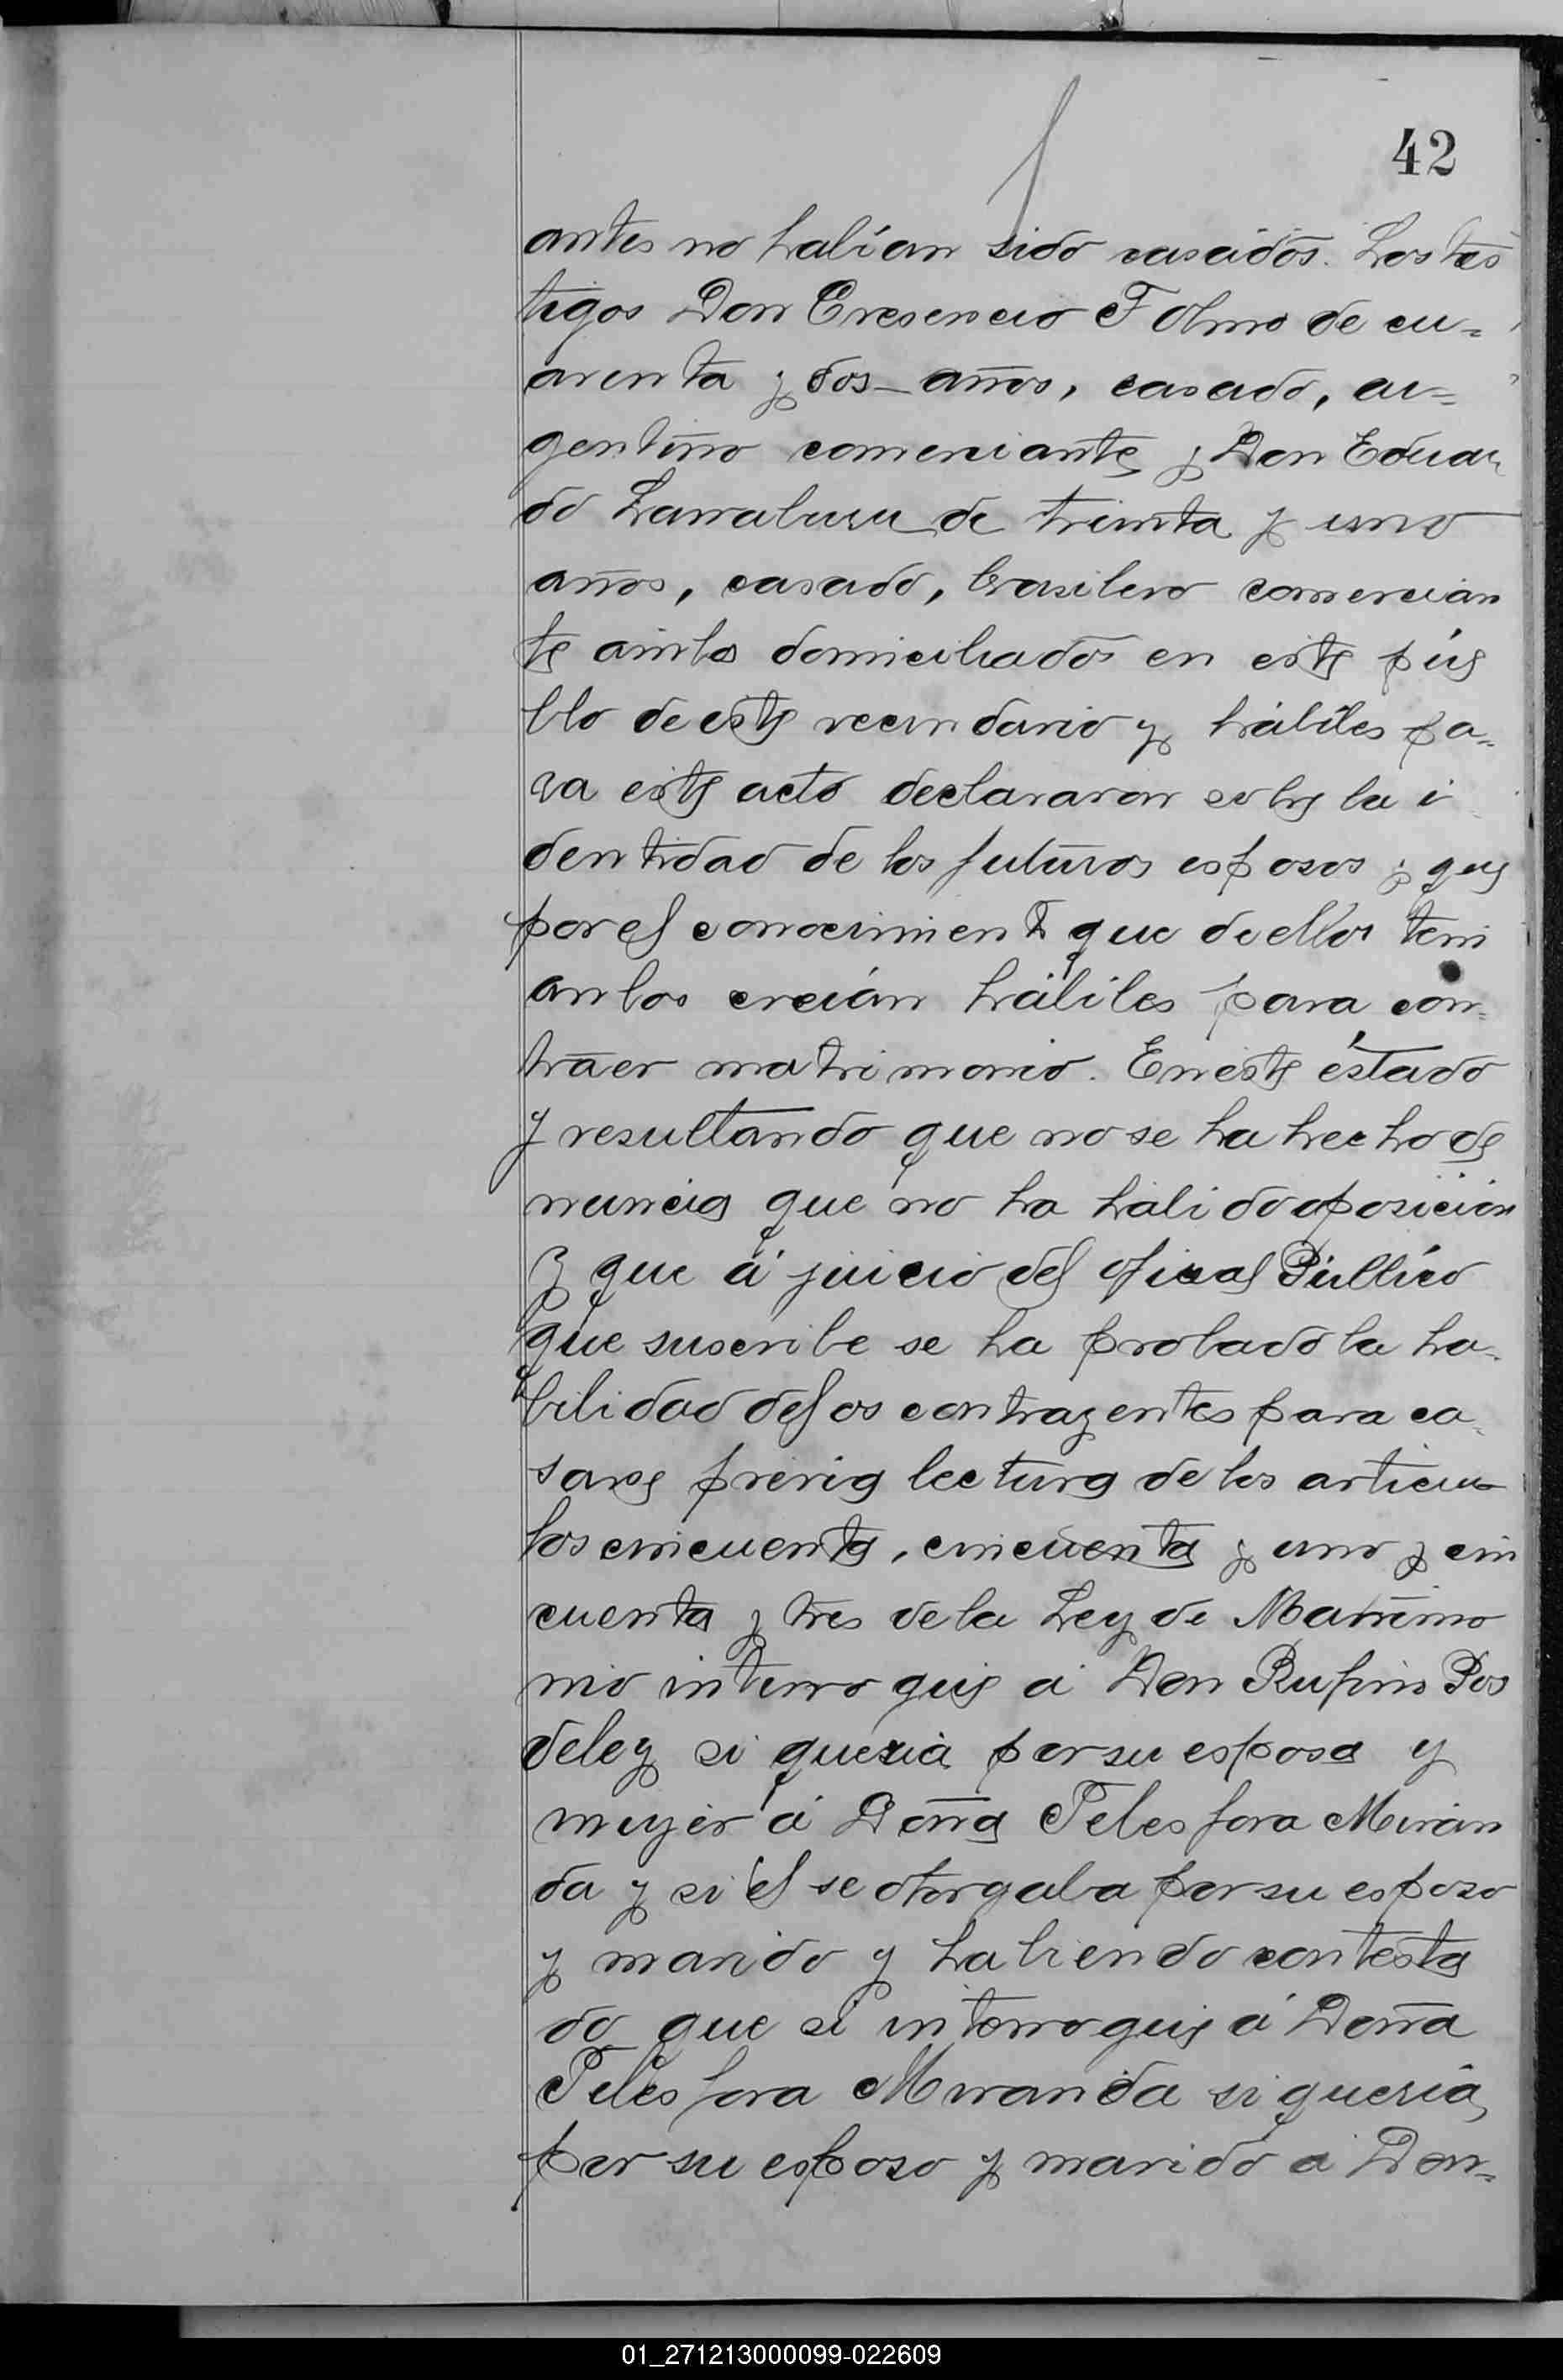 42
antes no habían sido casados. Los tes
tigos Don Cresencio F Olmo de cu=
arenta y dos años, casado, ar=
gentino comerciante y Don Eduar
do Larraburu de treinta y uno
años, casado, brasilero comercian
te ambos domiciliados en este pue
blo de este vecindario y hábiles pa=
ra este acto declararon sobre la i
dentidad de los futuros esposos y que
por el conocimiento que de ellos tení
an los creían hábiles para con=
traer matrimonio. En este estado
y resultando que no se ha hecho de
nuncia que no ha habido oposicion
y que á juicio del oficial Público
que suscribe se ha probado la ha=
bilidad de los contrayentes para ca
sarse previa lectura de los articu
los cincuenta, cincuenta y uno y cin
cuenta y tres de la Ley de Matrimo
nio interrogué á Don Rufino Pos
deley si quería por su esposa y
mujer á Doña Telesfora Miran
da y si él se otorgaba por su esposo
y marido y habiendo contesta
do que si interrogué á Doña
Telesfora Miranda si quería
por su esposo y marido á Don=
01_271213000099-022609